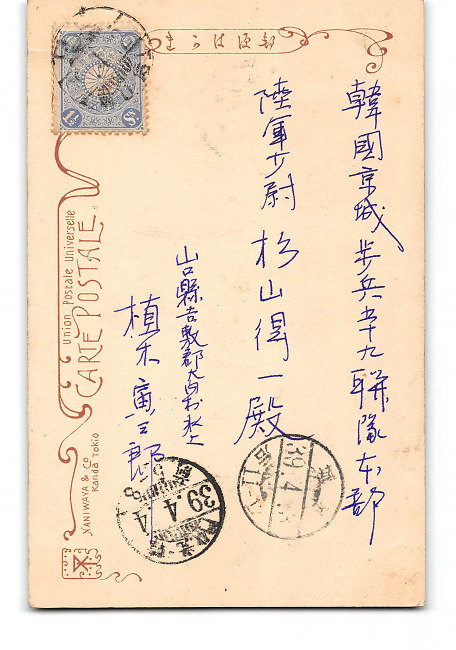 きかは便郵
韓國京城步兵五十九聯隊本部
陸軍少尉 杉山得一殿
山口縣吉敷郡大内村水上
植木寅三郎
1½ Sn
Union Postale Universelle
CARTE POSTALE.
NANIWAYA & CO
Kanda Tokio
39.4.4
39.4